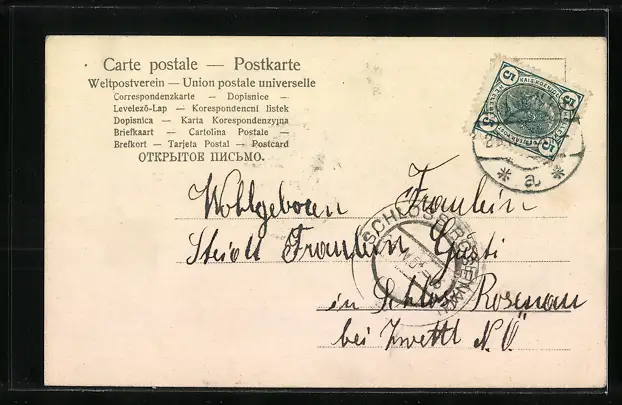 Carte postale — Postkarte
Weltpostverein — Union postale universelle
Correspondenzkarte — Dopisnice —
Levelező-Lap — Korespondencni listek
Dopisnica — Karta Korespondenzyjna
Briefkaart — Cartolina Postale —
Brefkort — Tarjeta Postal — Postcard
ОТКРЫТОЕ ПИСЬМО.
5 5 5 5
* a *
SCHLOSS ROSENAU
Wohlgeboren Fraulein
Fraulein Gusti
in Schlos Rosenau
bei Zwettl N.Ö